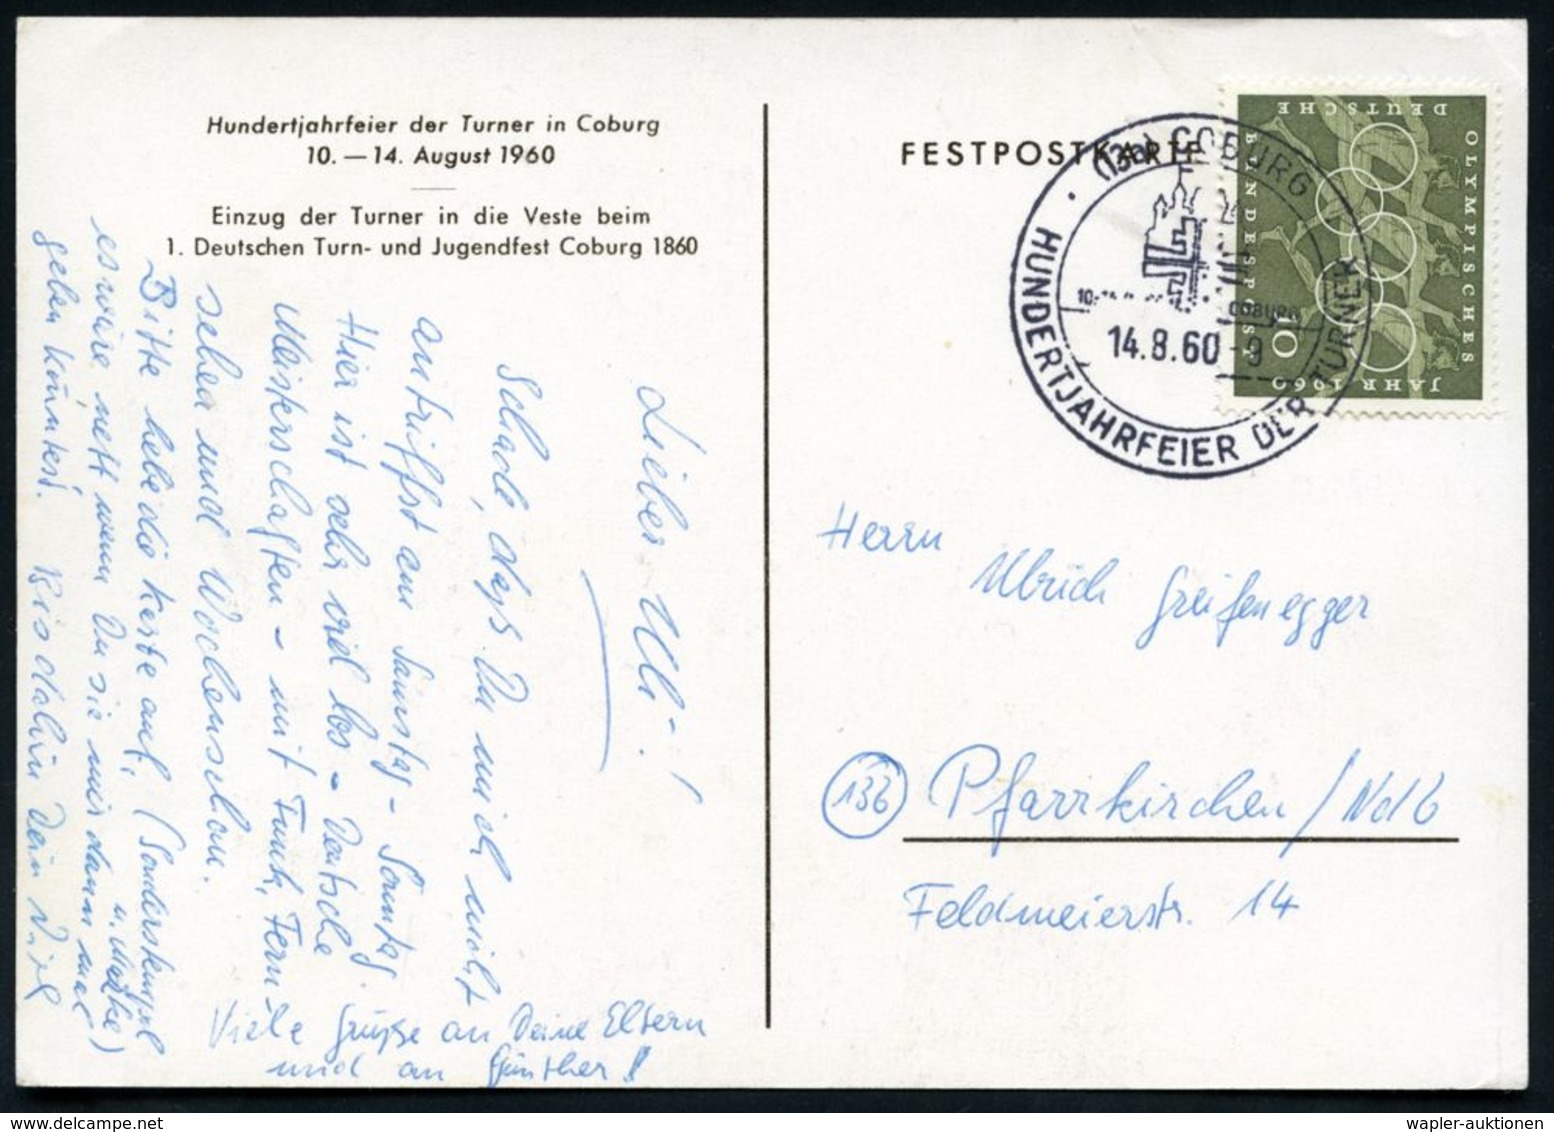 Hundertjahrfeier der Turner in Coburg
10. — 14. August 1960
Einzug der Turner in die Veste beim
1. Deutschen Turn- und Jugendfest Coburg 1860
Lieber Uli!
Schade, dass Du mich nicht
antriffst am Samstag - Sonntag.
Hier ist sehr viel los - Deutsche
Meisterschaften - mit Funk, Fern-
sehen und Wochenschau.
Bitte hebe die Karte auf, (Sonderstempel
u. Marke)
es wäre nett wenn Du sie mir dann mal
geben könntest. Bis dahin Dein
Viele Grüsse an Deine Eltern
und an Günther!
FESTPOSTKARTE
(13a) COBURG
10.-14. COBURG
14.8.60-9
HUNDERTJAHRFEIER DER TURNER
DEUTSCHE
BUNDESPOST
OLYMPISCHES
JAHR 1960
10
Herrn
Ulrich Greifenegger
(13b) Pfarrkirchen/Ndb
Feldmeierstr. 14
wapler-auktionen